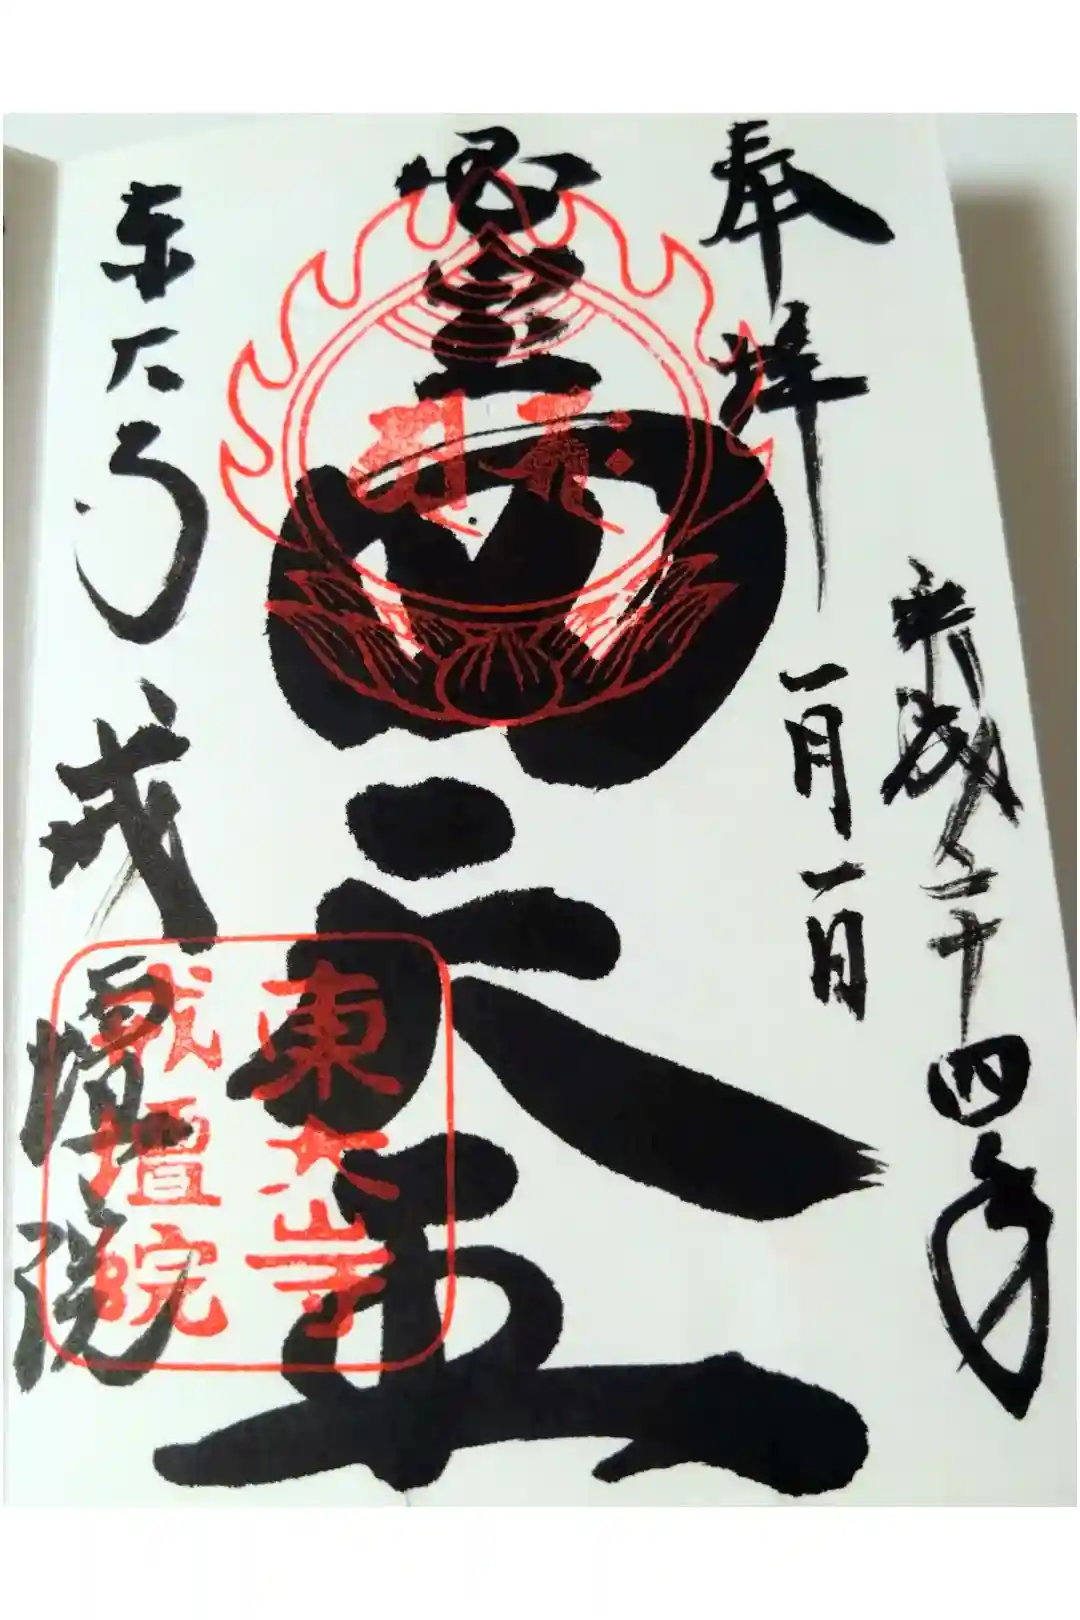 奉拝
平成二十四年
一月一日
国宝
四天王
東大寺
戒壇院
東大寺
戒壇院